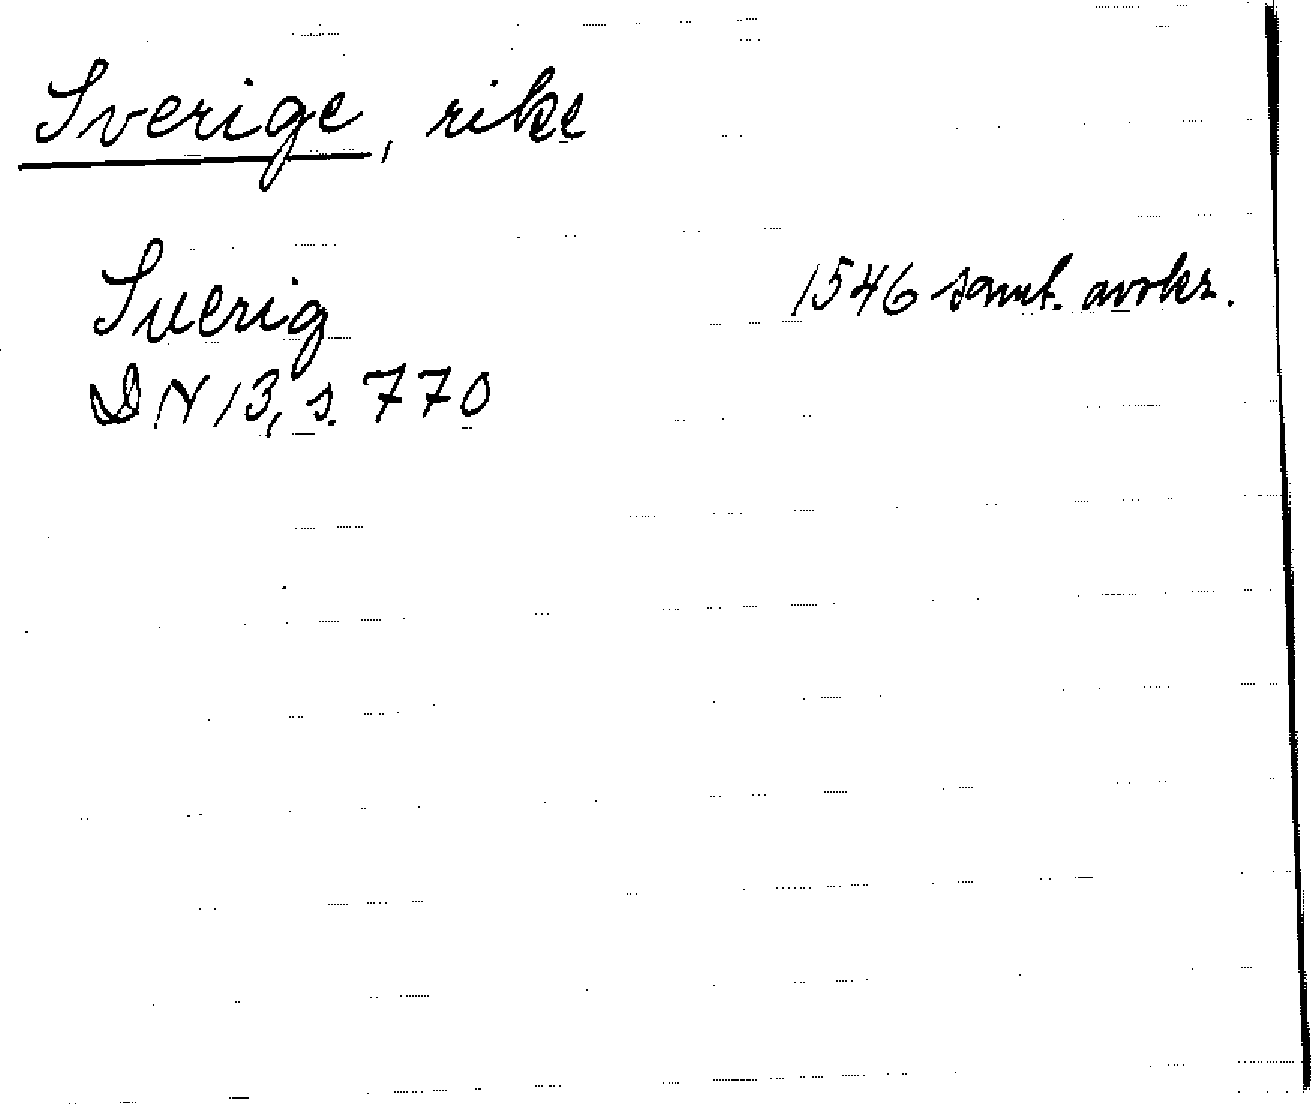 Sverige, rike
Suerig 1546 samt. avskr.
DN 13, s. 770